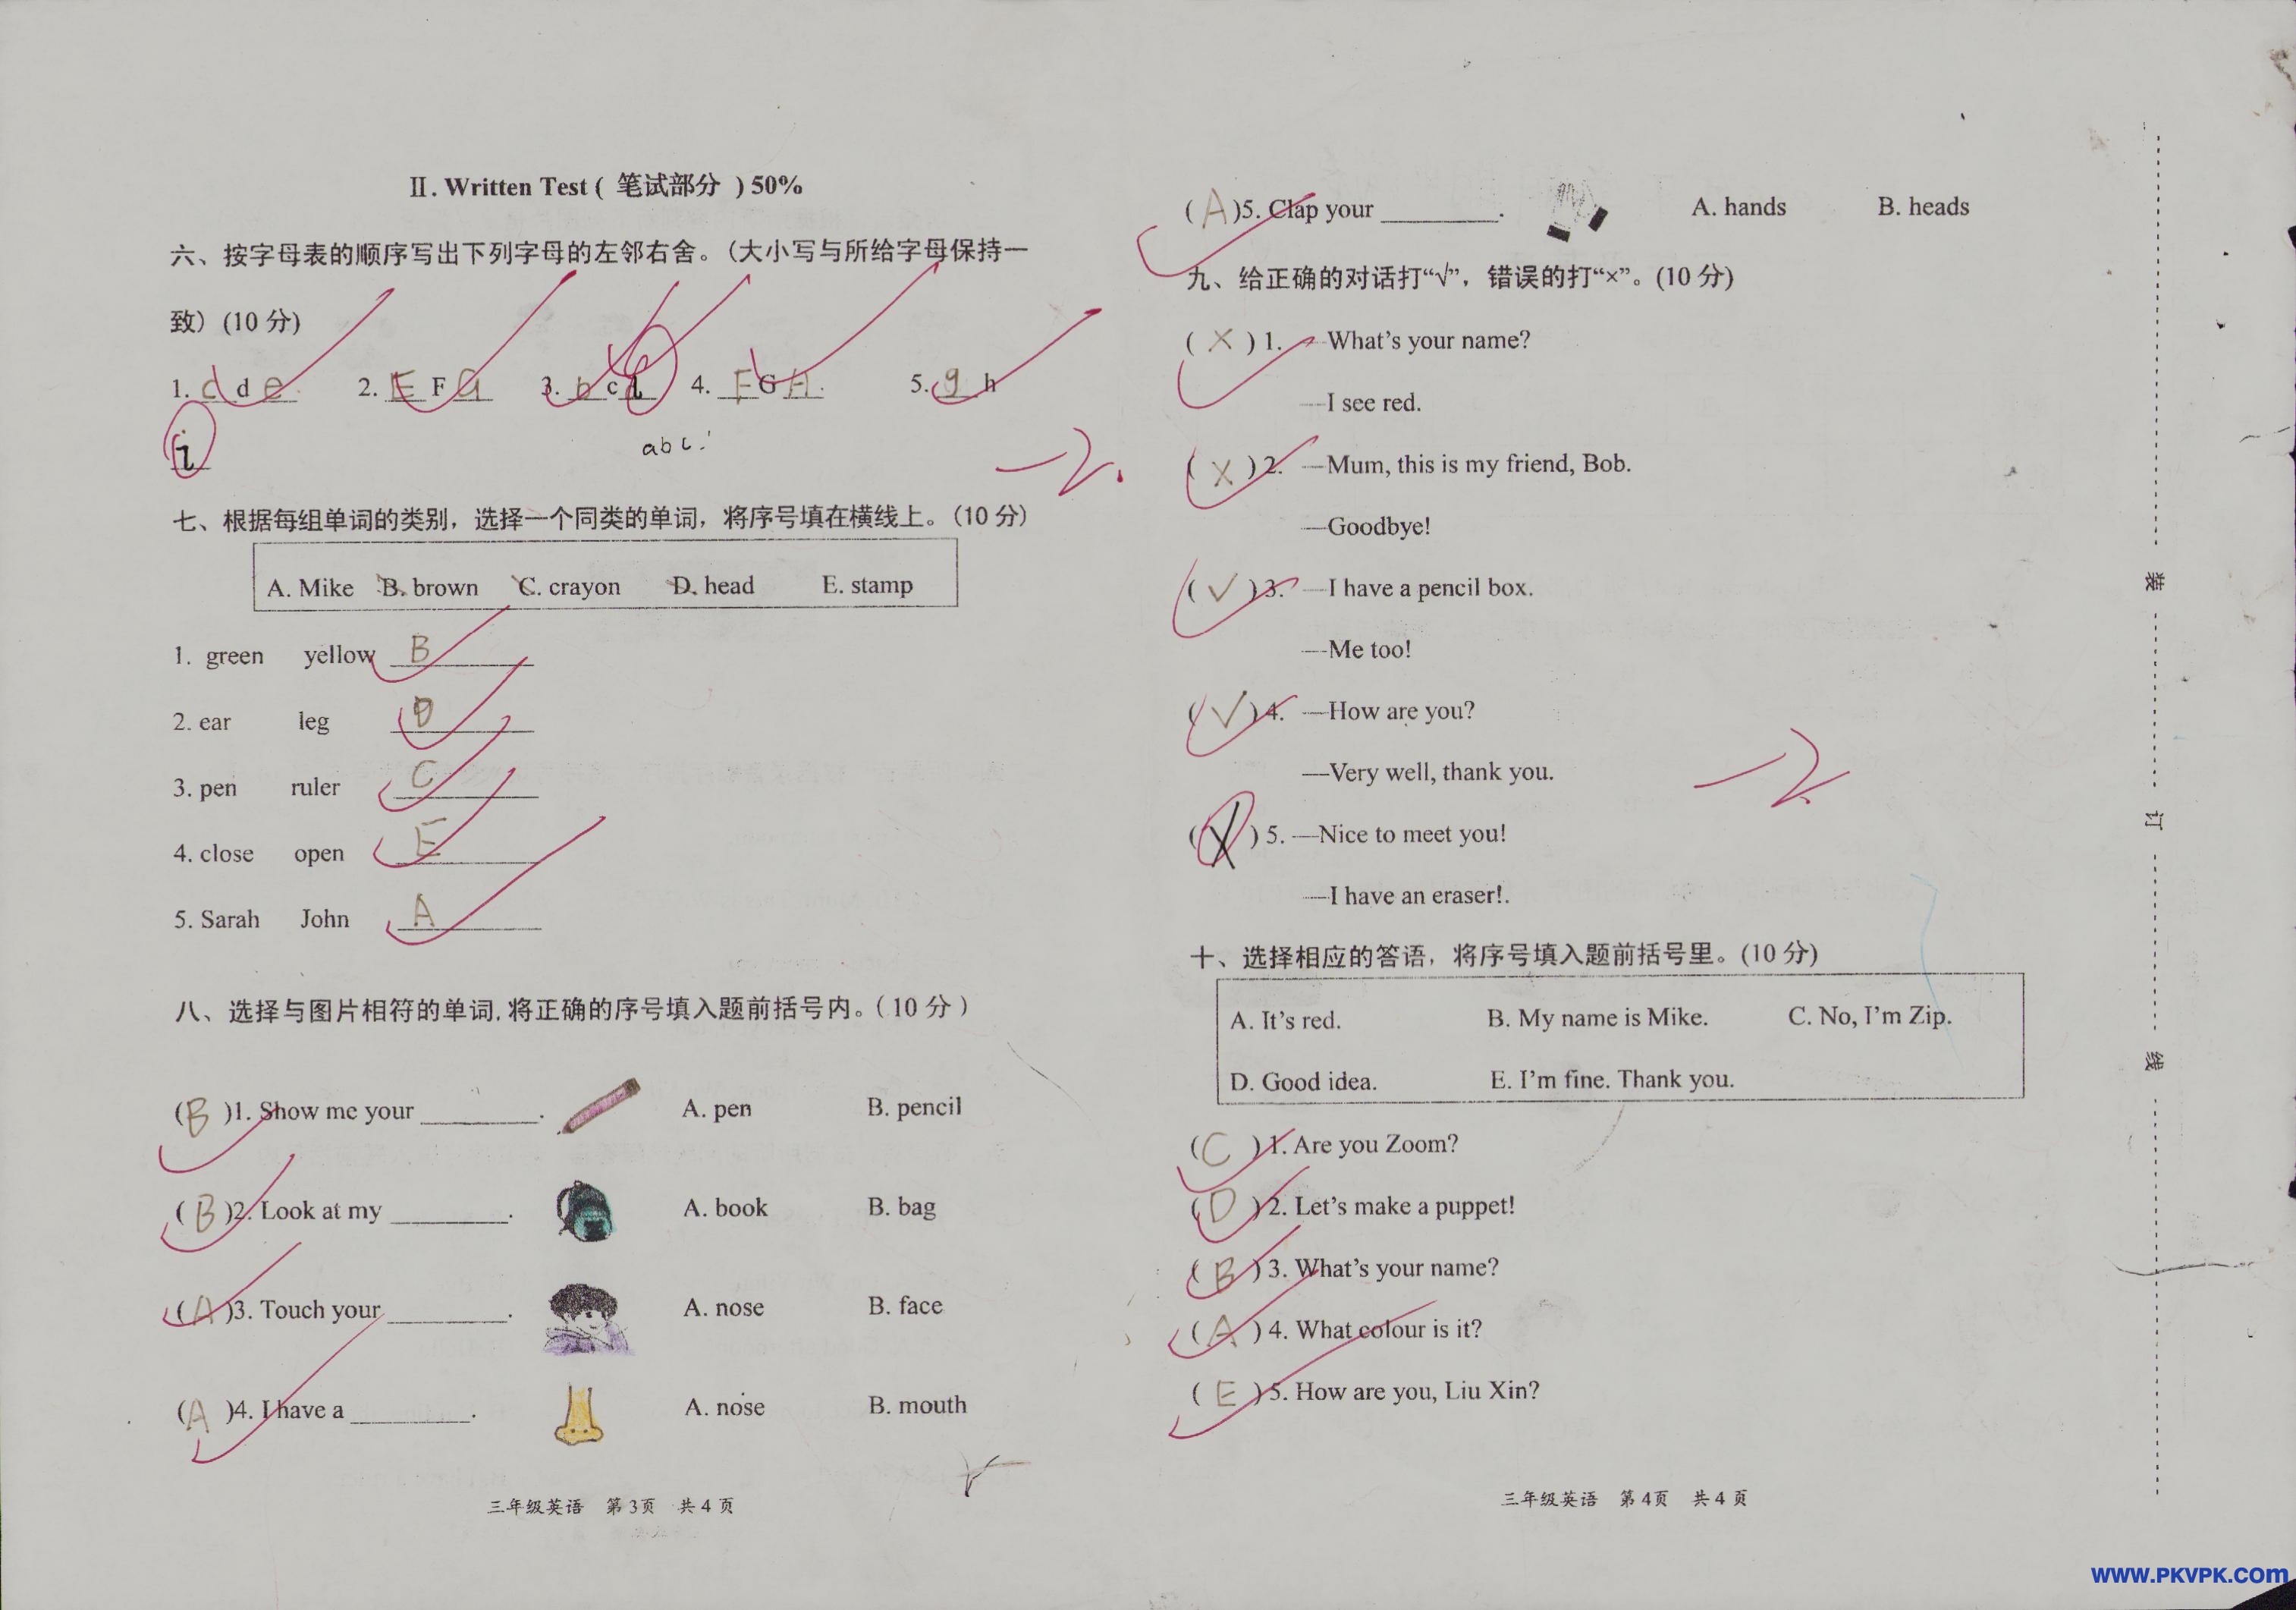 II. Written Test ( 笔试部分 ) 50%
六、按字母表的顺序写出下列字母的左邻右舍。(大小写与所给字母保持一
致) (10 分)
1. c d e 2. E F G 3. b c d 4. F G H 5. g h
i
abc
-2.
七、根据每组单词的类别，选择一个同类的单词，将序号填在横线上。(10 分)
A. Mike B. brown C. crayon D. head E. stamp
1. green yellow B
2. ear leg D
3. pen ruler C
4. close open E
5. Sarah John A
八、选择与图片相符的单词,将正确的序号填入题前括号内。( 10 分 )
(B)1. Show me your ________. A. pen B. pencil
(B)2. Look at my ________. A. book B. bag
(A)3. Touch your ________. A. nose B. face
(A)4. I have a ________. A. nose B. mouth
三年级英语 第 3页 共 4 页
(A)5. Clap your ________. A. hands B. heads
九、给正确的对话打“√”，错误的打“×”。(10 分)
(×) 1. —What's your name?
—I see red.
(×) 2. —Mum, this is my friend, Bob.
—Goodbye!
(√) 3. —I have a pencil box.
—Me too!
(√) 4. —How are you?
—Very well, thank you.
-2.
(×) 5. —Nice to meet you!
—I have an eraser!.
十、选择相应的答语，将序号填入题前括号里。(10 分)
A. It's red. B. My name is Mike. C. No, I'm Zip.
D. Good idea. E. I'm fine. Thank you.
(C) 1. Are you Zoom?
(D) 2. Let's make a puppet!
(B) 3. What's your name?
(A) 4. What colour is it?
(E) 5. How are you, Liu Xin?
三年级英语 第 4页 共 4 页
装
订
线
www.PKVPK.com